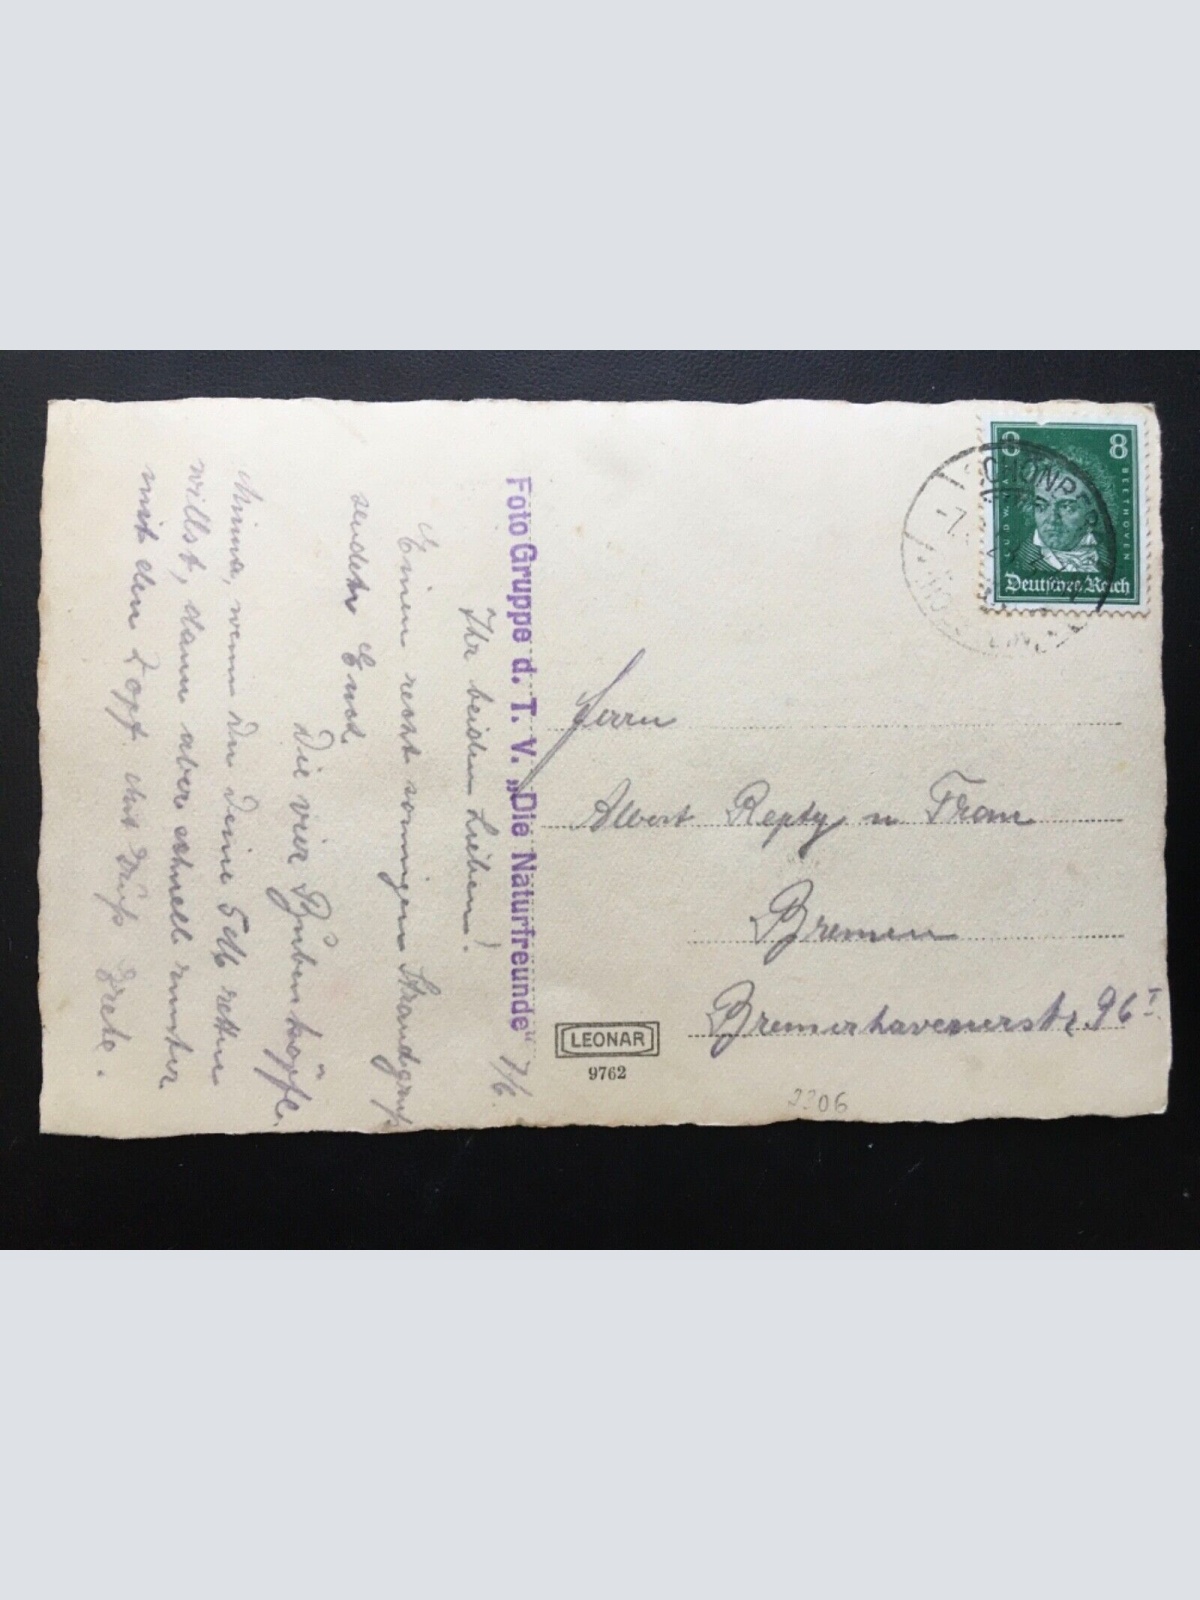 7/6.
Ihr beiden Lieben!
Einen recht sonnigen Strandgruß
sendet Euch
Die vier Bubenköpfe.
Minna, wenn du deine 5 M retten
willst, dann aber schnell runter
mit den Zopf. Grete.
Foto Gruppe d. T. V. „Die Naturfreunde"
8 8
LUDW. V. BEETHOVEN
Deutsches Reich
SCHÖNBERG
Herrn
Albert Repty u Frau
Bremen
Bremerhavenerstr. 96 I
LEONAR
9762
2206